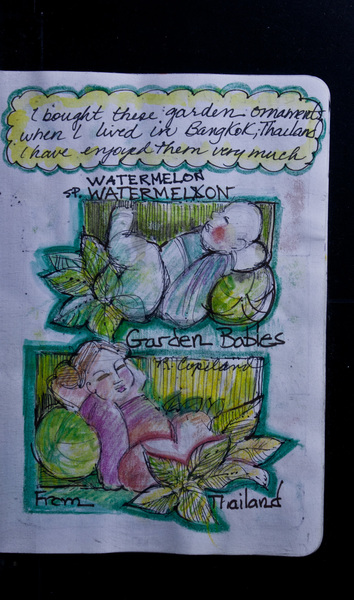 I bought these garden ornaments
when I lived in Bangkok, Thailand
I have enjoyed them very much
WATERMELON
SP. WATERMELXON
Garden Babies
N. Copeland
From Thailand